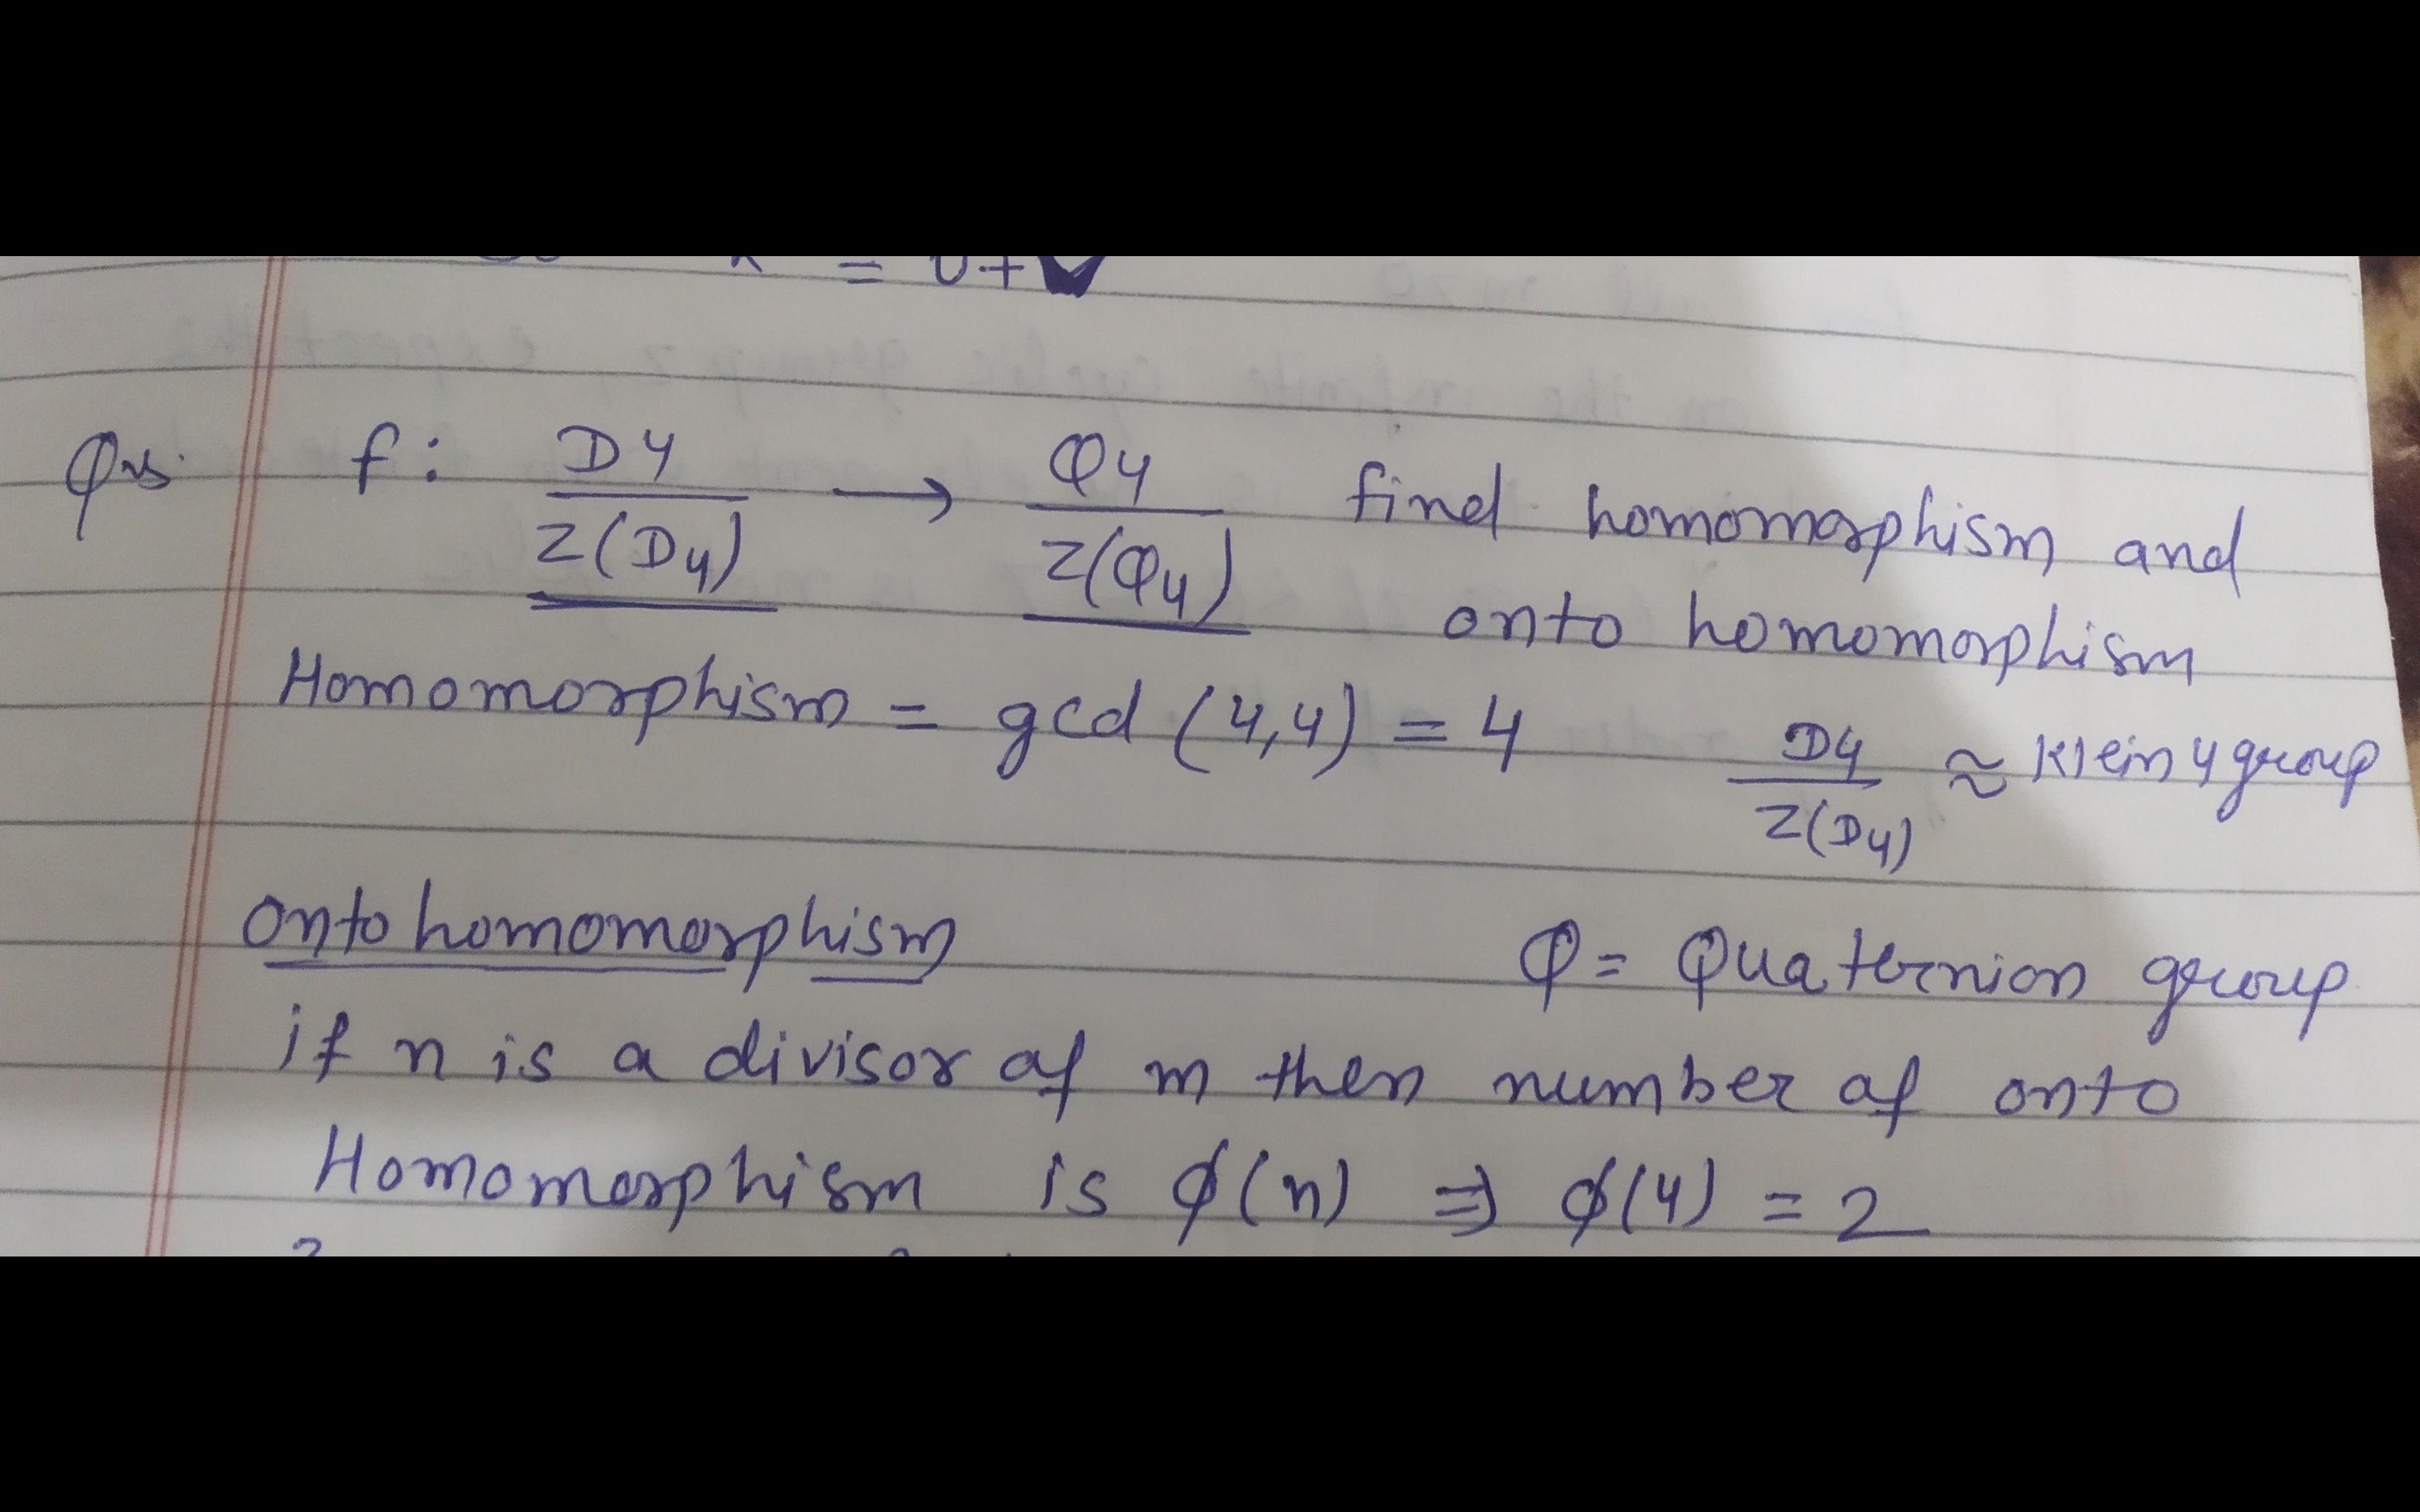 = 0+
Qus. f: D4/Z(D4) → Q4/Z(Q4) find homomorphism and
onto homomorphism
Homomorphism = gcd (4,4) = 4
D4/Z(D4) ≈ Klein 4 group
Onto homomorphism
Q = Quaternion group
if n is a divisor of m then number of onto
Homomorphism is ϕ(n) ⇒ ϕ(4) = 2